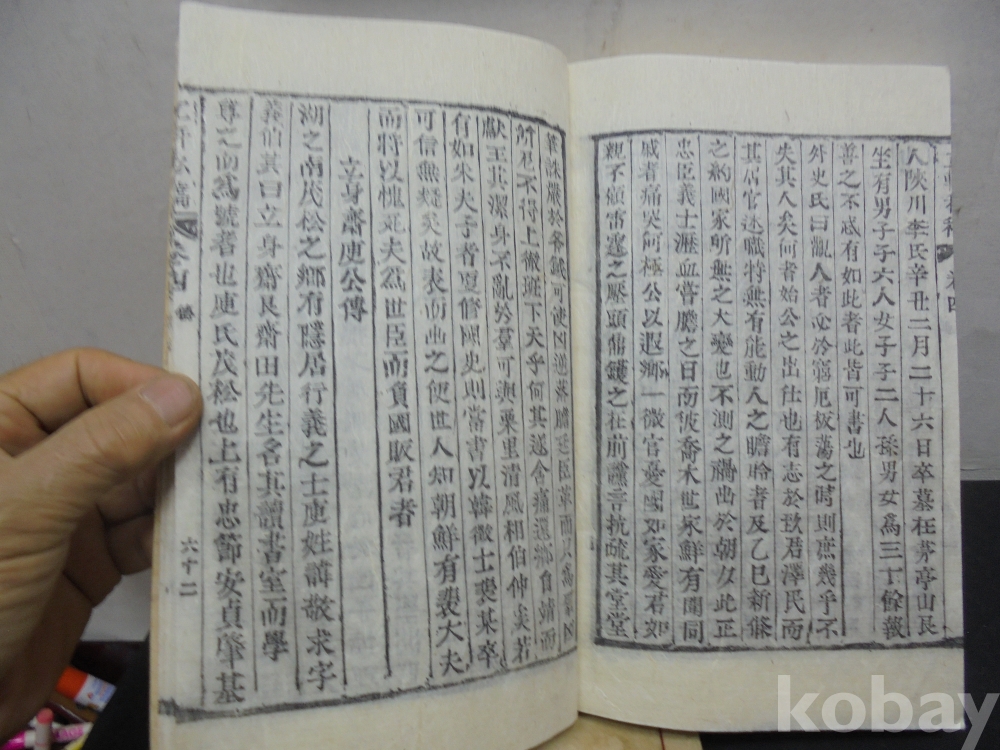 人陜川李氏辛丑二月二十六日卒墓在芳亭山艮
坐有男子子六人女子子二人孫男女爲三丁餘報
善之不忒有如此者此皆可書也
外史氏曰亂人者必於窮厄板蕩之時則庶幾乎不
失其人矣何者始公之出仕也有志於致君澤民而
其居官述職特無有能動人之瞻聆者及乙巳新條
之約國家所無之大變也不測之禍出於朝夕此正
忠臣義士瀝血嘗膽之日南陂喬木世家鮮有聞同
戚者痛哭何極公以遐鄉一微官憂國如家愛君如
親不顧雷霆之壓頭鐵鉞之在前讜言抗疏其堂堂
筆誅嚴於斧鉞可使凶逆落膽
所君不得上徹班下天乎何其遂舍痛還鄉自靖而
獻王其潔身不亂於羣可與栗里淸風相伯仲矣若
有如朱夫子者更修國史則當書以韓徵士裵某卒
可信無疑矣故表而出之使世人知朝鮮有裵大夫
而將以愧死夫爲世臣而負國販君者
立身齋庾公傳
湖之南茂松之鄕有隱居行義之士庾姓諱敬求字
義伯其曰立身齋艮齋田先生名其讀書室而學
尊之而爲號者也庾氏茂松也上有忠節安貞肇基
卷四
六十二
kobay